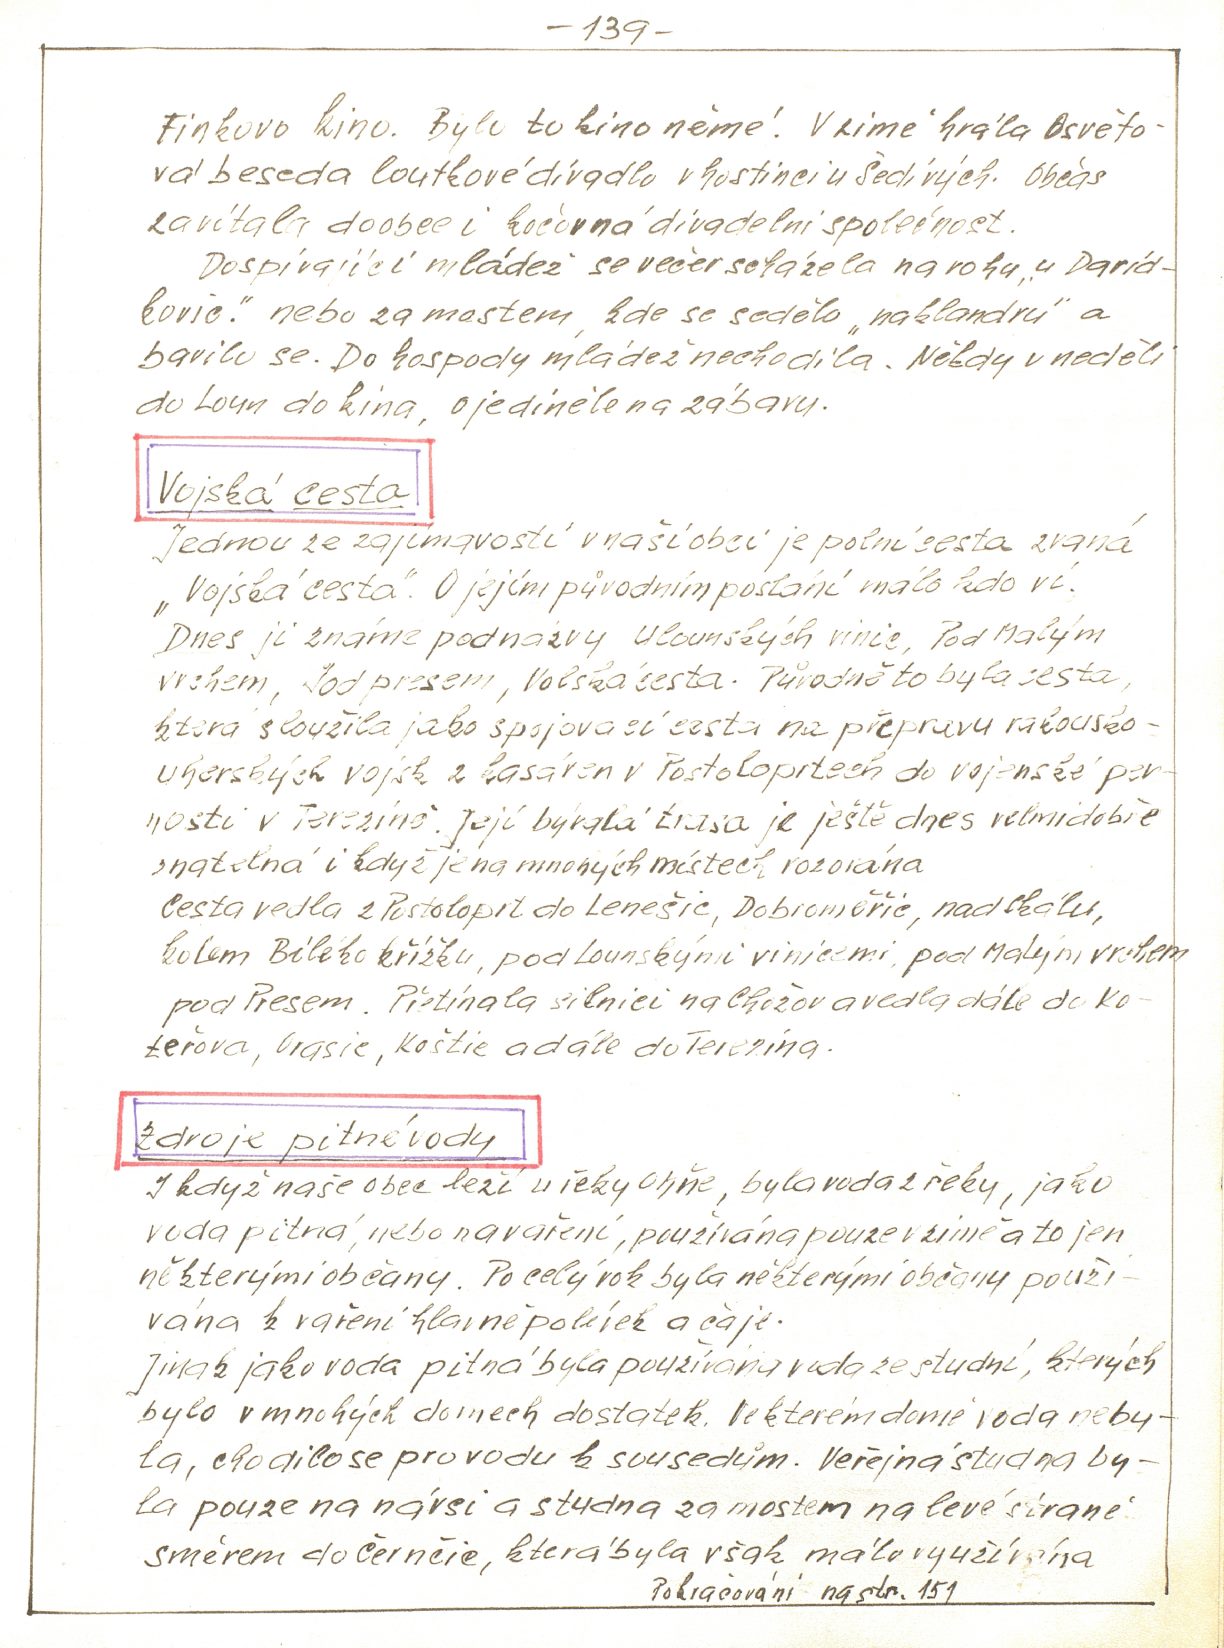 - 139 -
Finkovo kino. Bylo to kino němé. V zimě hrála Osvěto-
vá beseda loutkové divadlo v hostinci u Šedivých. Občas
zavítala do obce i kočovná divadelní společnost.
Dospívající mládež se večer scházela na rohu „u David-
kovic." nebo za mostem, kde se sedělo „na klandrů" a
bavilo se. Do hospody mládež nechodila. Někdy v neděli
do Loun do kina, ojediněle na zábavu.
Vojská cesta
Jednou ze zajímavostí v naší obci je polní cesta zvaná
„Vojská cesta". O jejím původním poslání málo kdo ví.
Dnes ji známe pod názvy U lounských vinic, Pod Malým
vrchem, Pod presem, Volská cesta. Původně to byla cesta,
která sloužila jako spojovací cesta na přepravu rakousko-
uherských vojsk z kasáren v Postoloprtech do vojenské pev-
nosti v Terezíně. Její bývalá trasa je ještě dnes velmi dobře
znatelná i když je na mnohých místech rozorána
Cesta vedla z Postoloprt do Lenešic, Dobroměřic, nad Skálu,
kolem Bílého křížku, pod Lounskými vinicemi, pod Malým vrchem
pod Presem. Přetínala silnici na Chožov a vedla dále do Ko-
teřova, Orasic, Koštic a dále do Terezína.
Zdroje pitné vody
I když naše obec leží u řeky Ohře, byla voda z řeky, jako
voda pitná, nebo na vaření, používána pouze v zimě a to jen
některými občany. Po celý rok byla některými občany použí-
vána k vaření hlavně polévek a čaje.
Jinak jako voda pitná byla používána voda ze studní, kterých
bylo v mnohých domech dostatek. Ve kterém domě voda neby-
la, chodilo se pro vodu k sousedům. Veřejná studna by-
la pouze na návsi a studna za mostem na levé straně
směrem do Černčic, která byla však málo využívána
Pokračování na str. 151